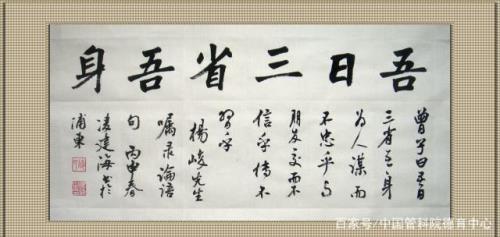 吾日三省吾身
曾子曰吾日
三省吾身
为人谋而
不忠乎与
朋友交而不
信乎传不
習乎
楊峻先生
嘱录論語
句 丙申春
凌建海书于
浦東
百家号/中国管科院德育中心